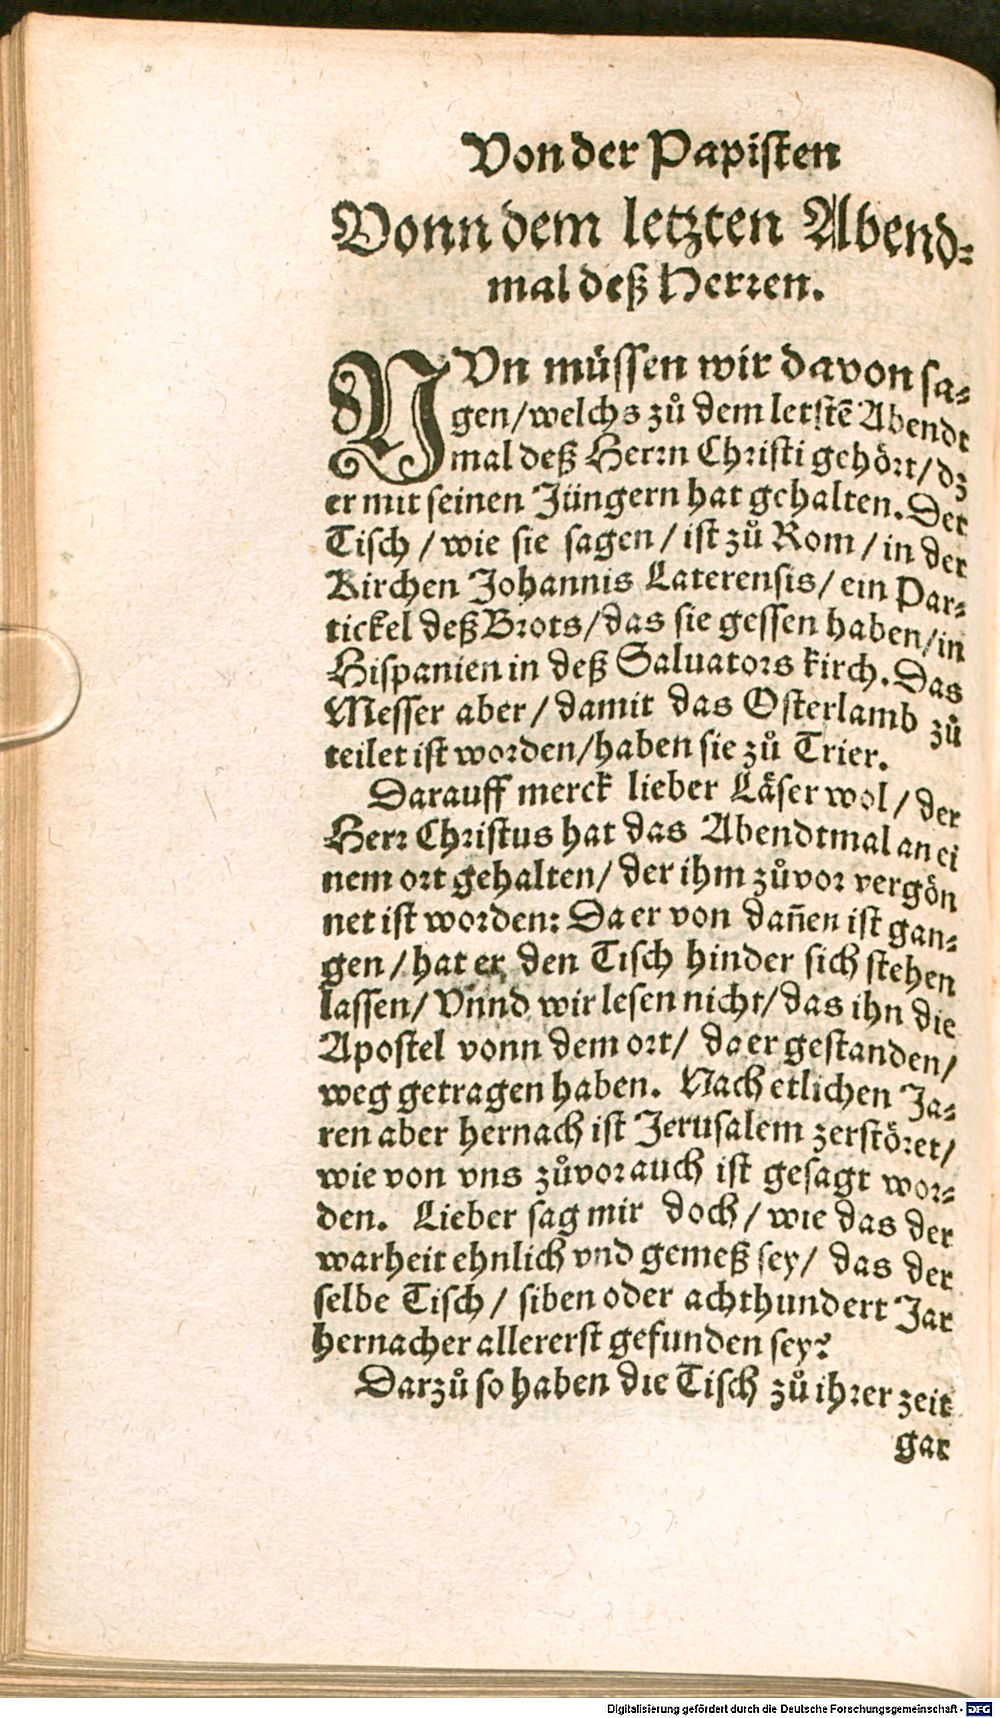 Von der Papisten
Vonn dem letzten Abend-
mal deß Herren.
NVn müssen wir davon sa-
gen/welchs zů dem letstē Abendt
mal deß Herrn Christi gehört/dz
er mit seinen Jüngern hat gehalten. Der
Tisch/wie sie sagen/ist zů Rom/in der
Kirchen Johannis Laterensis/ein Par-
tickel deß Brots/das sie gessen haben/in
Hispanien in deß Saluators kirch. Das
Messer aber/damit das Osterlamb zů
teilet ist worden/haben sie zů Trier.
Darauff merck lieber Läser wol/der
Herr Christus hat das Abendtmal an ei
nem ort gehalten/der ihm zůvor vergön
net ist worden: Da er von dañen ist gan-
gen/hat er den Tisch hinder sich stehen
lassen/Vnnd wir lesen nicht/das ihn die
Apostel vonn dem ort/da er gestanden/
weg getragen haben. Nach etlichen Ja-
ren aber hernach ist Jerusalem zerstöret/
wie von vns zůvor auch ist gesagt wor-
den. Lieber sag mir doch/wie das der
warheit ehnlich vnd gemeß sey/das der
selbe Tisch/siben oder achthundert Jar
hernacher allererst gefunden sey?
Darzů so haben die Tisch zů ihrer zeit
gar
Digitalisierung gefördert durch die Deutsche Forschungsgemeinschaft - DFG